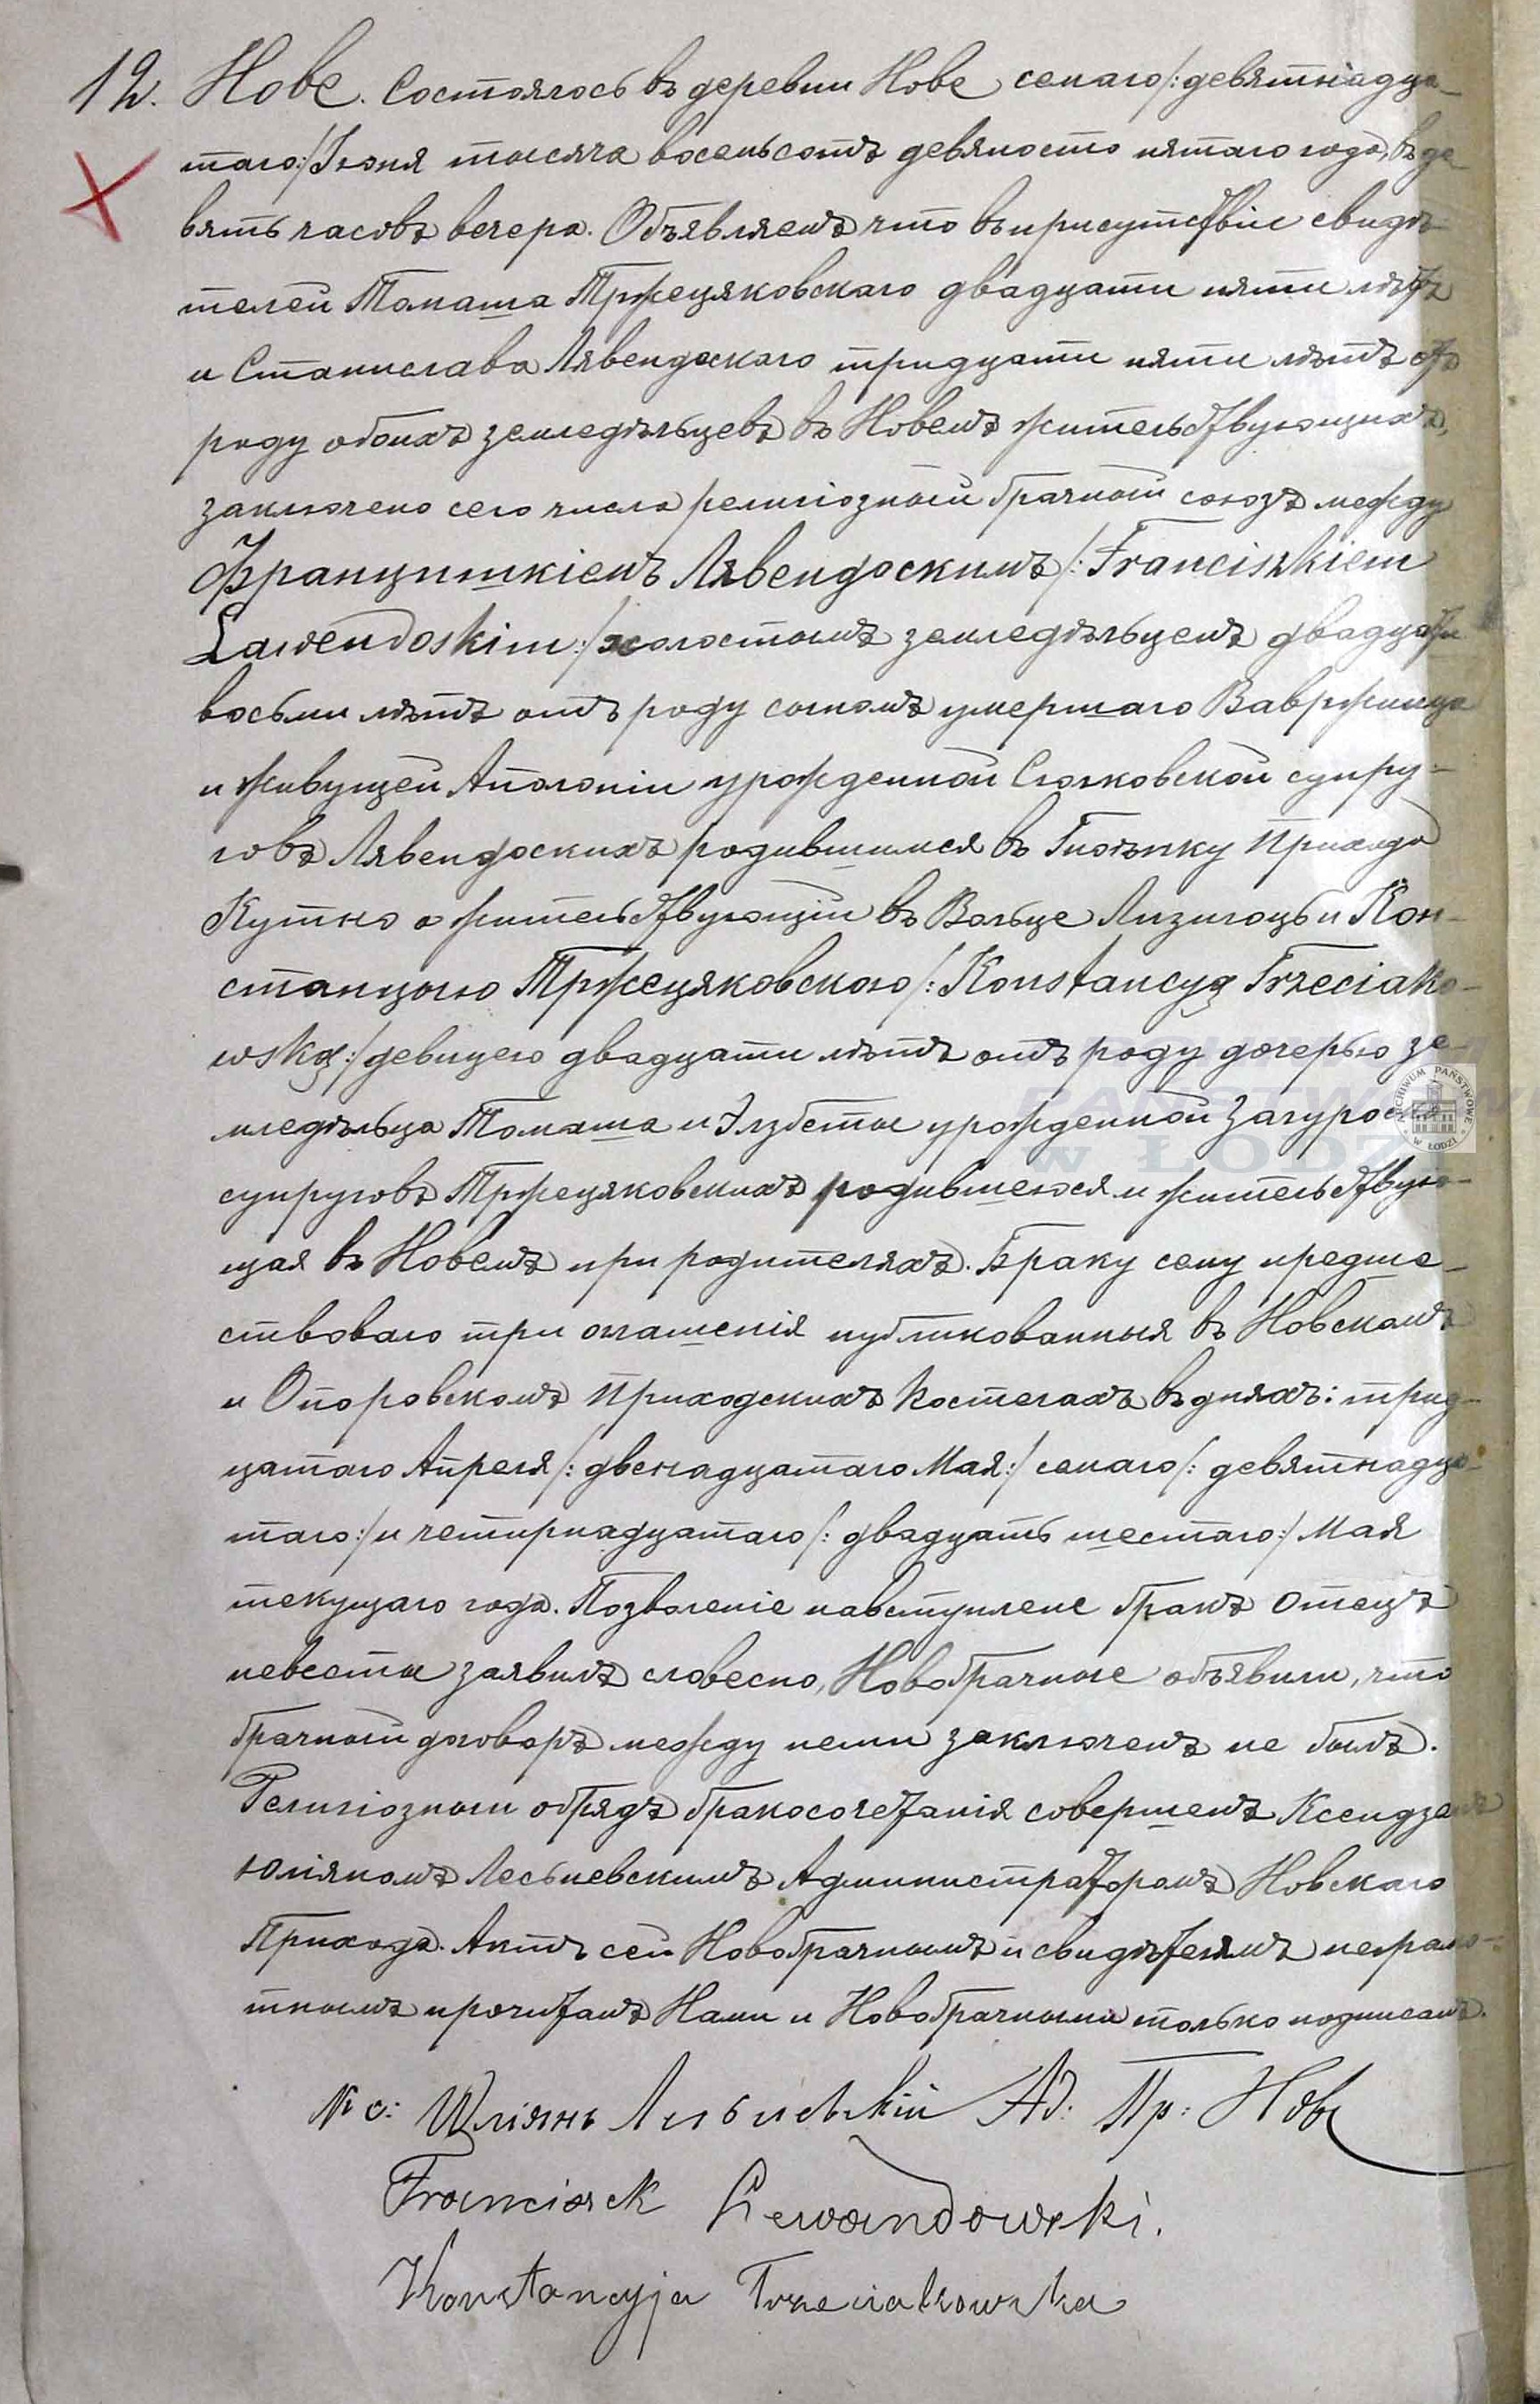 12. Нове. Состоялось въ деревни Нове семаго /: девятнадца-
таго :/ Іюня тысяча восемьсотъ девяносто пятаго года, въ де
вять часовъ вечера. Объявляемъ что въ присутствіи свидѣ-
телей Томаша Тржецяковскаго двадцати пяти лѣтъ
и Станислава Лявендоскаго тридцати пяти лѣтъ отъ
роду обоихъ земледѣльцевъ въ Новемъ жительствующихъ,
заключено сего числа религіозный брачный союзъ между
Францишкіемъ Лявендоскимъ /: Franciszkiem
Lawendoskim :/ холостымъ земледѣльцемъ двадцати
восьми лѣтъ отъ роду сыномъ умершаго Вавржинца
и живущей Аполоніи урожденной супру-
говъ Лявендоскихъ родившимся въ Прихода
Кутно а жительствующій въ Вольце и Кон-
станцыю Тржецяковскою /: Konstancyą Trzeciako-
wską :/ девицею двадцати лѣтъ отъ роду дочерью зе-
мледѣльца Томаша и Элзбеты урожденной
супруговъ Тржецяковскихъ родившеюся и жительствую-
щая въ Новемъ при родителяхъ. Браку сему предше-
ствовало три оглашенія публикованныя въ Новскомъ
и Опоровскомъ Приходскихъ Костелахъ въ дняхъ: трид-
цатаго Апреля /: двенадцатаго Мая :/ семаго /: девятнадца-
таго :/ и четирнадцатаго /: двадцать шестаго :/ Мая
текущаго года. Позволеніе навступлене бракъ Отецъ
невесты заявилъ словесно, Новобрачные объявили, что
брачный договоръ между ними заключенъ не былъ.
Религіозный обрядъ бракосочетанія совершенъ Ксендземъ
Юліяномъ Лесьневскимъ Администраторомъ Новскаго
Прихода. Актъ сей Новобрачнымъ и свидѣтелямъ неграмо-
тнымъ прочитанъ Нами и Новобрачными только подписанъ.
Кс: Юліянъ Лесьневскій Ад: Пр: Нове
Franciszek Lewandowski.
Konstancyja Trzeciakowska
ARCHIWUM PAŃSTWOWE W ŁODZI